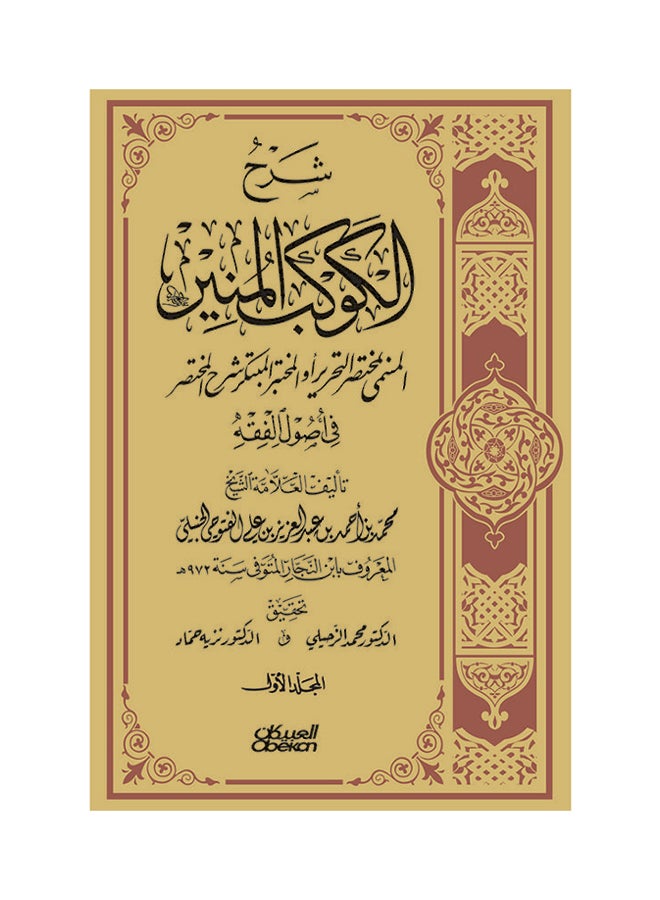 شَرْحُ
الكَوْكَبِ المُنِيْرِ
المسمى بمختصر التحرير أو المختبر المبتكر شرح المختصر
في أُصُولِ الفِقْهِ
تأليف العلّامة الشيخ
محمد بن أحمد بن عبد العزيز بن علي الفتوحي الحنبلي
المعروف بابن النجار المتوفى سنة ٩٧٢هـ
تحقيق
الدكتور محمد الزحيلي و الدكتور نزيه حماد
المجلد الأول
العبيكان
Obëkan